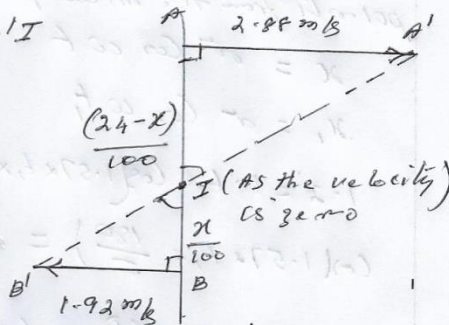 'I
A
2.88 m/s
A'
(24-x)
100
I (As the velocity)
is zero
x
100
B
B'
1.92 m/s